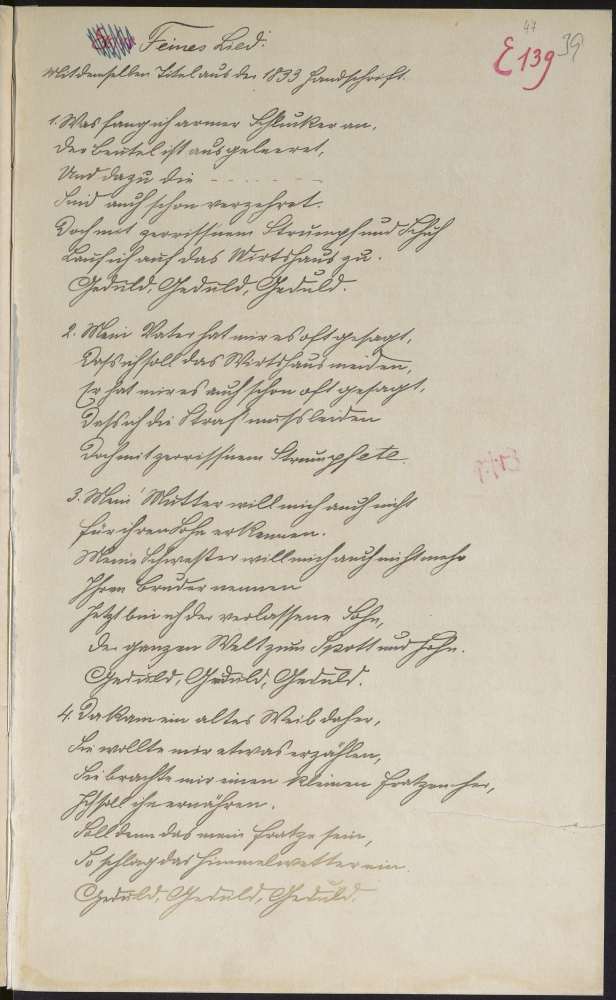 47
E 139 39
Feines Lied.
Mit demselben Titel aus der 1833 Handschrift.
1. Was fang ich armer Schlucker an,
Der Beutel ist ausgeleeret,
Und dazu die - - - - - -
Sind auch schon verzehret.
Doch mit zerrissinem Strumpf und Schuh
Lauf ich auf das Wirtshaus zu.
Geduld, Geduld, Geduld.
2. Mein Vater hat mir es oft gesagt,
Dass ich soll das Wirtshaus meiden,
Er hat mir es auch schon oft gesagt,
Dass ich die Straf muss leiden
Doch mit zerrissinem Strumpf etc.
3. Mein Mutter will mich auch nicht
für ihren Sohn erkennen.
Meine Schwester will mich auch nicht mehr
Ihren Bruder nennen
Jetzt bin ich der verlassene Sohn,
der ganzen Welt zum Spott und Hohn.
Geduld, Geduld, Geduld.
4. Da kam ein altes Weib daher,
Sie wollte mir etwas erzählen,
Sie brachte mir einen kleinen Fratzen her,
Ich soll ihn ernähren.
Soll denn das mein Fratze sein,
So schlag das Himmelwetter ein.
Geduld, Geduld, Geduld.